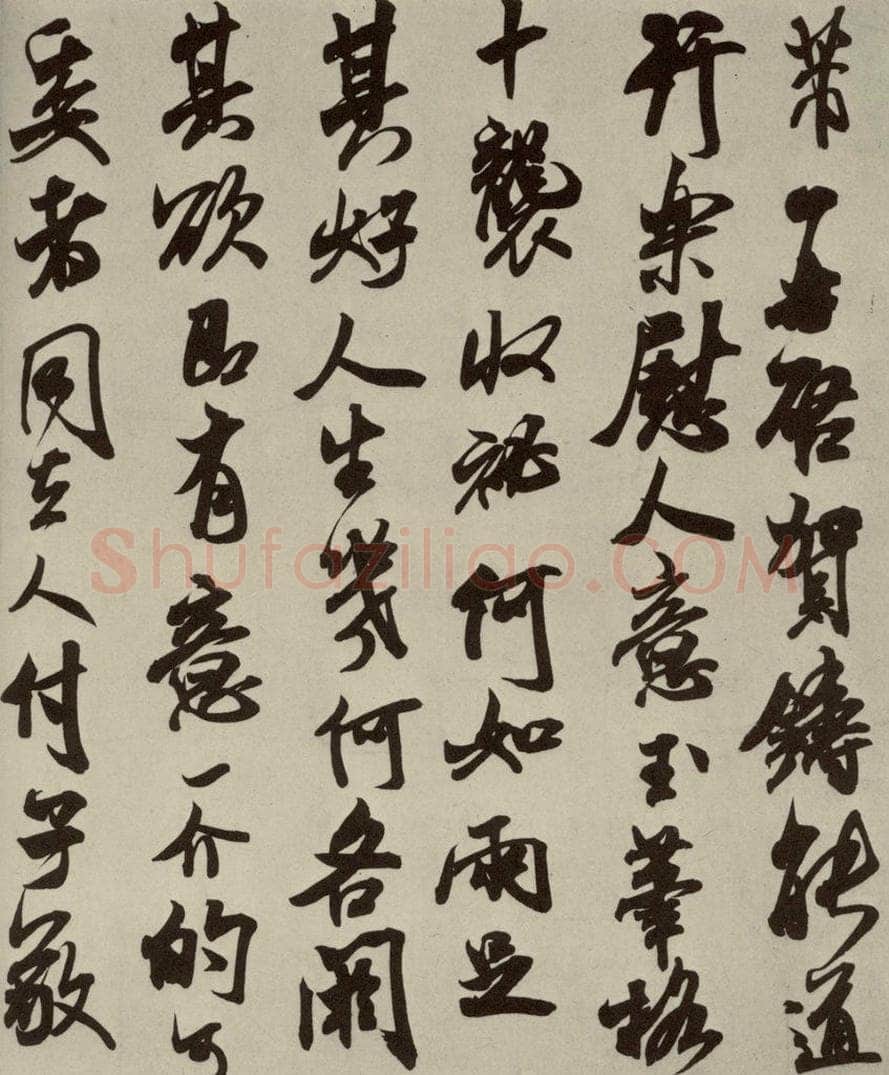 芾再啓賀鑄能道
行樂慰人意玉筆格
十襲收祕何如兩足
其好人生幾何各閼
其欲即有意一介的可
委者同去人付子敬
Shufaziliao.COM